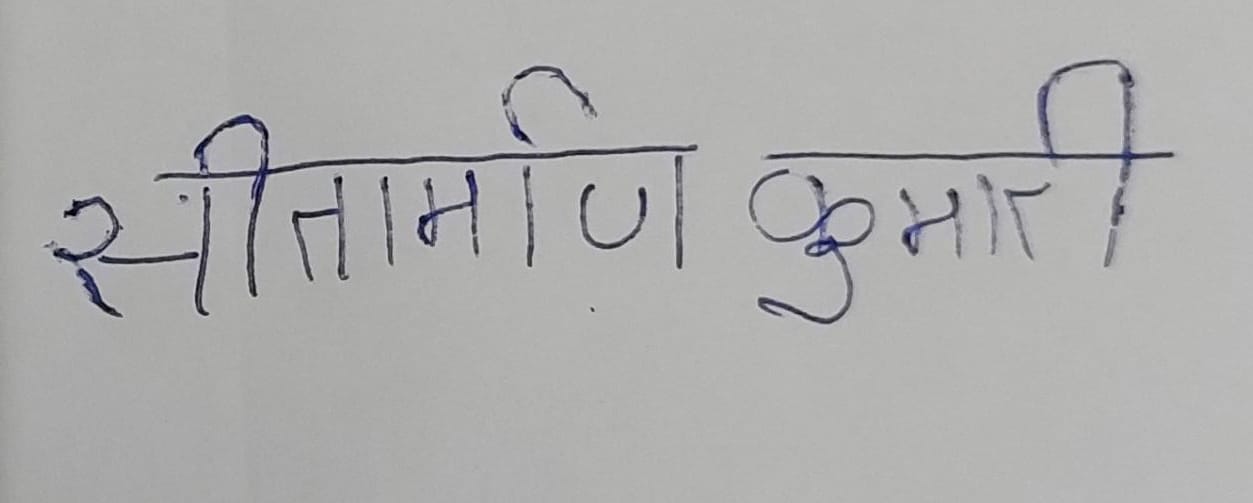 सीतामणि कुमारी